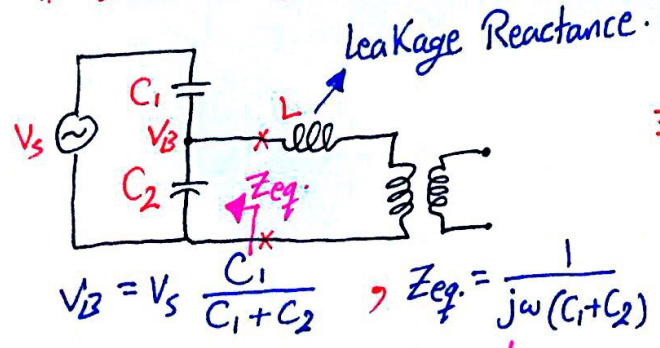 Leakage Reactance.
C₁
L
Vs
VB
C₂
Zeq.
VB = Vs C₁ / (C₁ + C₂) , Zeq. = 1 / jω(C₁+C₂)